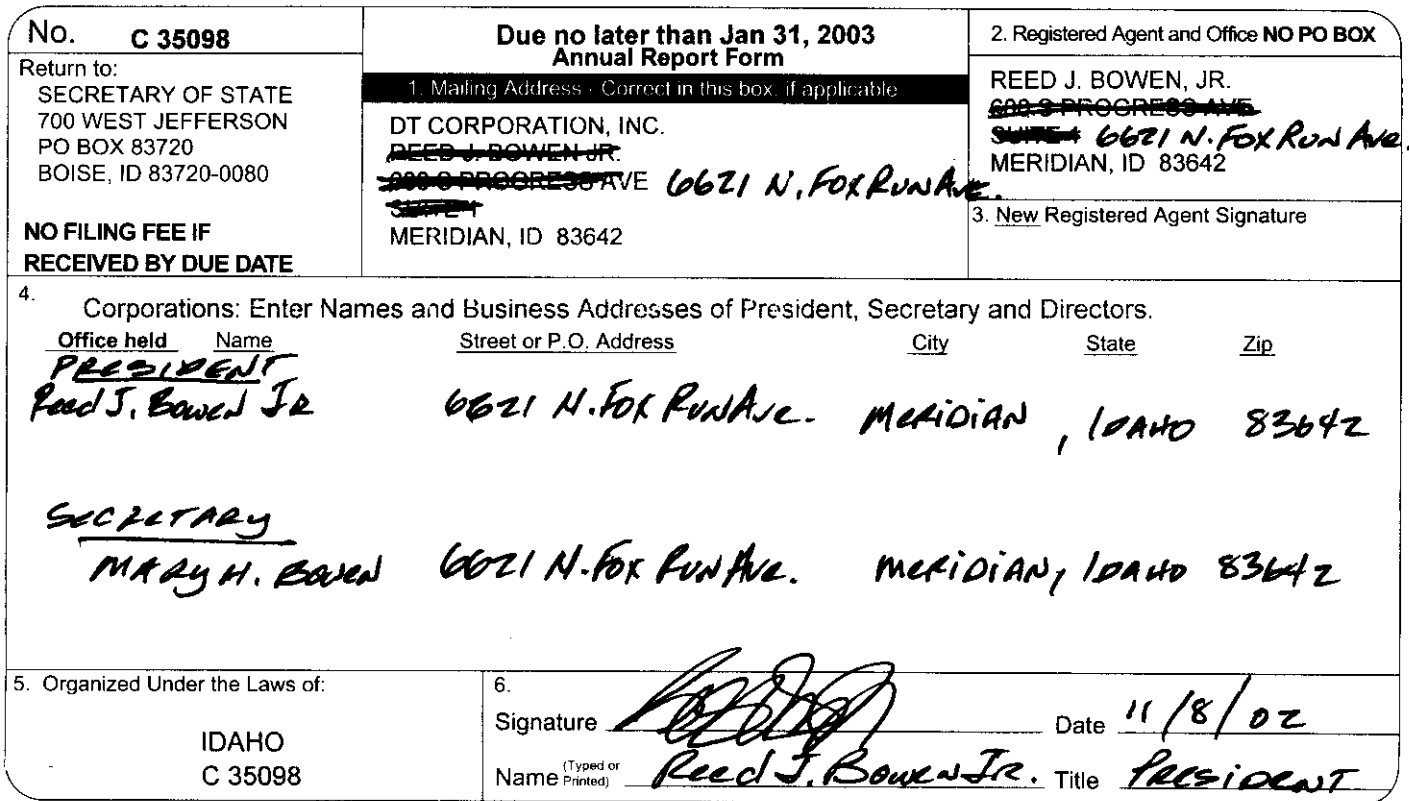 No. C 35098
Return to:
SECRETARY OF STATE
700 WEST JEFFERSON
PO BOX 83720
BOISE, ID 83720-0080
NO FILING FEE IF
RECEIVED BY DUE DATE
Due no later than Jan 31, 2003
Annual Report Form
1. Mailing Address - Correct in this box, if applicable
DT CORPORATION, INC.
REED J. BOWEN JR.
600 S PROGRESS AVE 6621 N. FOX RUN AVE.
SUITE 4
MERIDIAN, ID 83642
2. Registered Agent and Office NO PO BOX
REED J. BOWEN, JR.
600 S PROGRESS AVE
SUITE 4 6621 N. FOX RUN AVE.
MERIDIAN, ID 83642
3. New Registered Agent Signature
4. Corporations: Enter Names and Business Addresses of President, Secretary and Directors.
Office held Name Street or P.O. Address City State Zip
PRESIDENT
Reed J. Bowen JR 6621 N. FOX RUN AVE. MERIDIAN, IDAHO 83642
SECRETARY
MARY H. BOWEN 6621 N. FOX RUN AVE. MERIDIAN, IDAHO 83642
5. Organized Under the Laws of:
IDAHO
C 35098
6.
Signature Date 11/8/02
Name (Typed or Printed) Reed J. Bowen JR. Title PRESIDENT